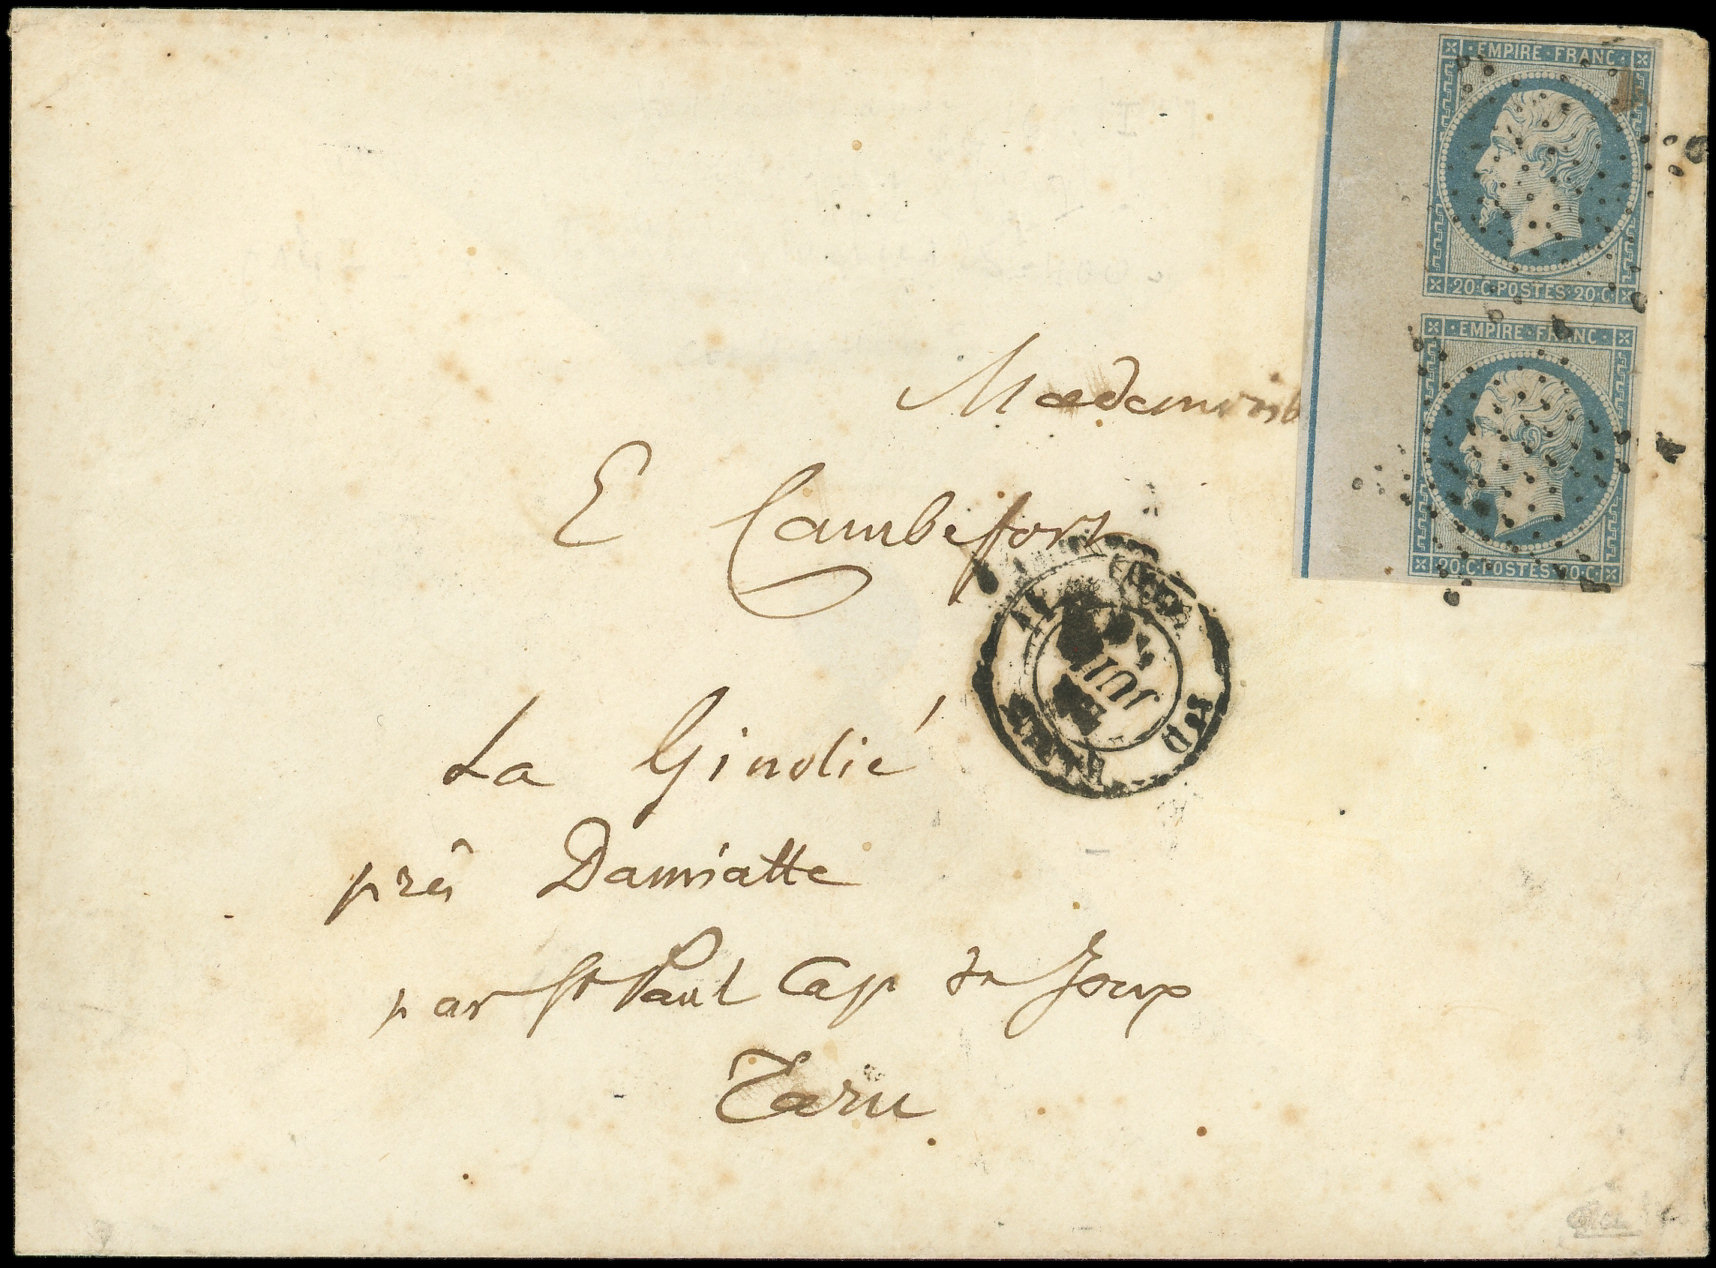 EMPIRE · FRANC ·
20 · C · POSTES · 20 · C ·
EMPIRE · FRANC ·
20 · C · POSTES · 20 · C ·
Mademoisel
E Cambefort
JUIL
La Gindié
près Damiatte
par St Paul Cap de Joux
Tarn